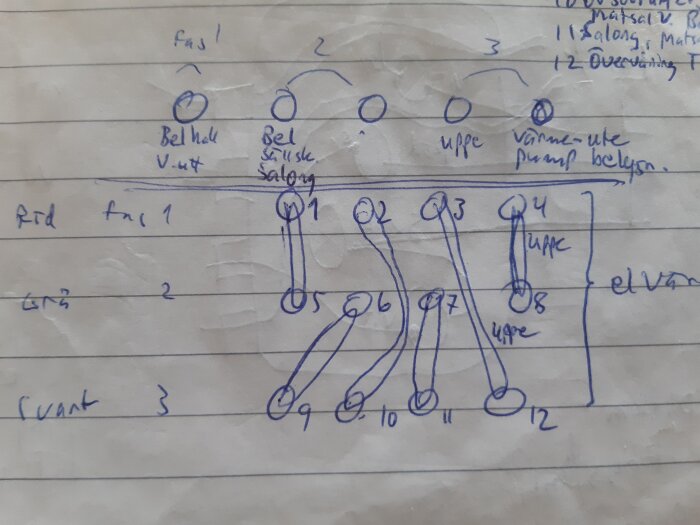 Matsal v. B
11 Salong, Mats
12 Övervåning T
fas 1 2 3
Bel hall Bel uppe värme- ute
V-ut Sällsk pump belysn.
Salong
Röd fas 1 1 2 3 4
uppe
Grå 2 5 6 7 8
uppe
Svart 3 9 10 11 12
elvär